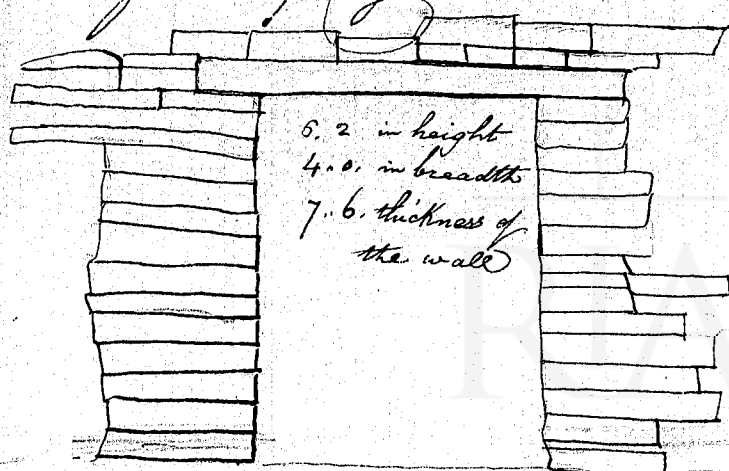 6. 2 in height
4.. 0. in breadth
7.. 6. thickness of
the wall
RIA